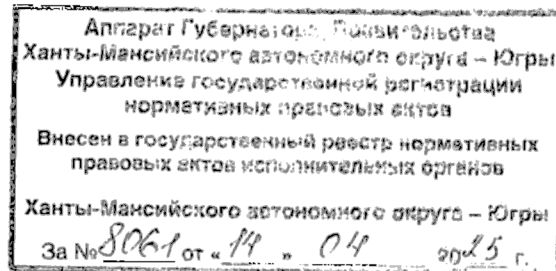 Аппарат Губернатора, Правительства
Ханты-Мансийского автономного округа – Югры
Управление государственной регистрации
нормативных правовых актов
Внесен в государственный реестр нормативных
правовых актов исполнительных органов
Ханты-Мансийского автономного округа – Югры
За № 8061 от « 14 » 04 2025 г.